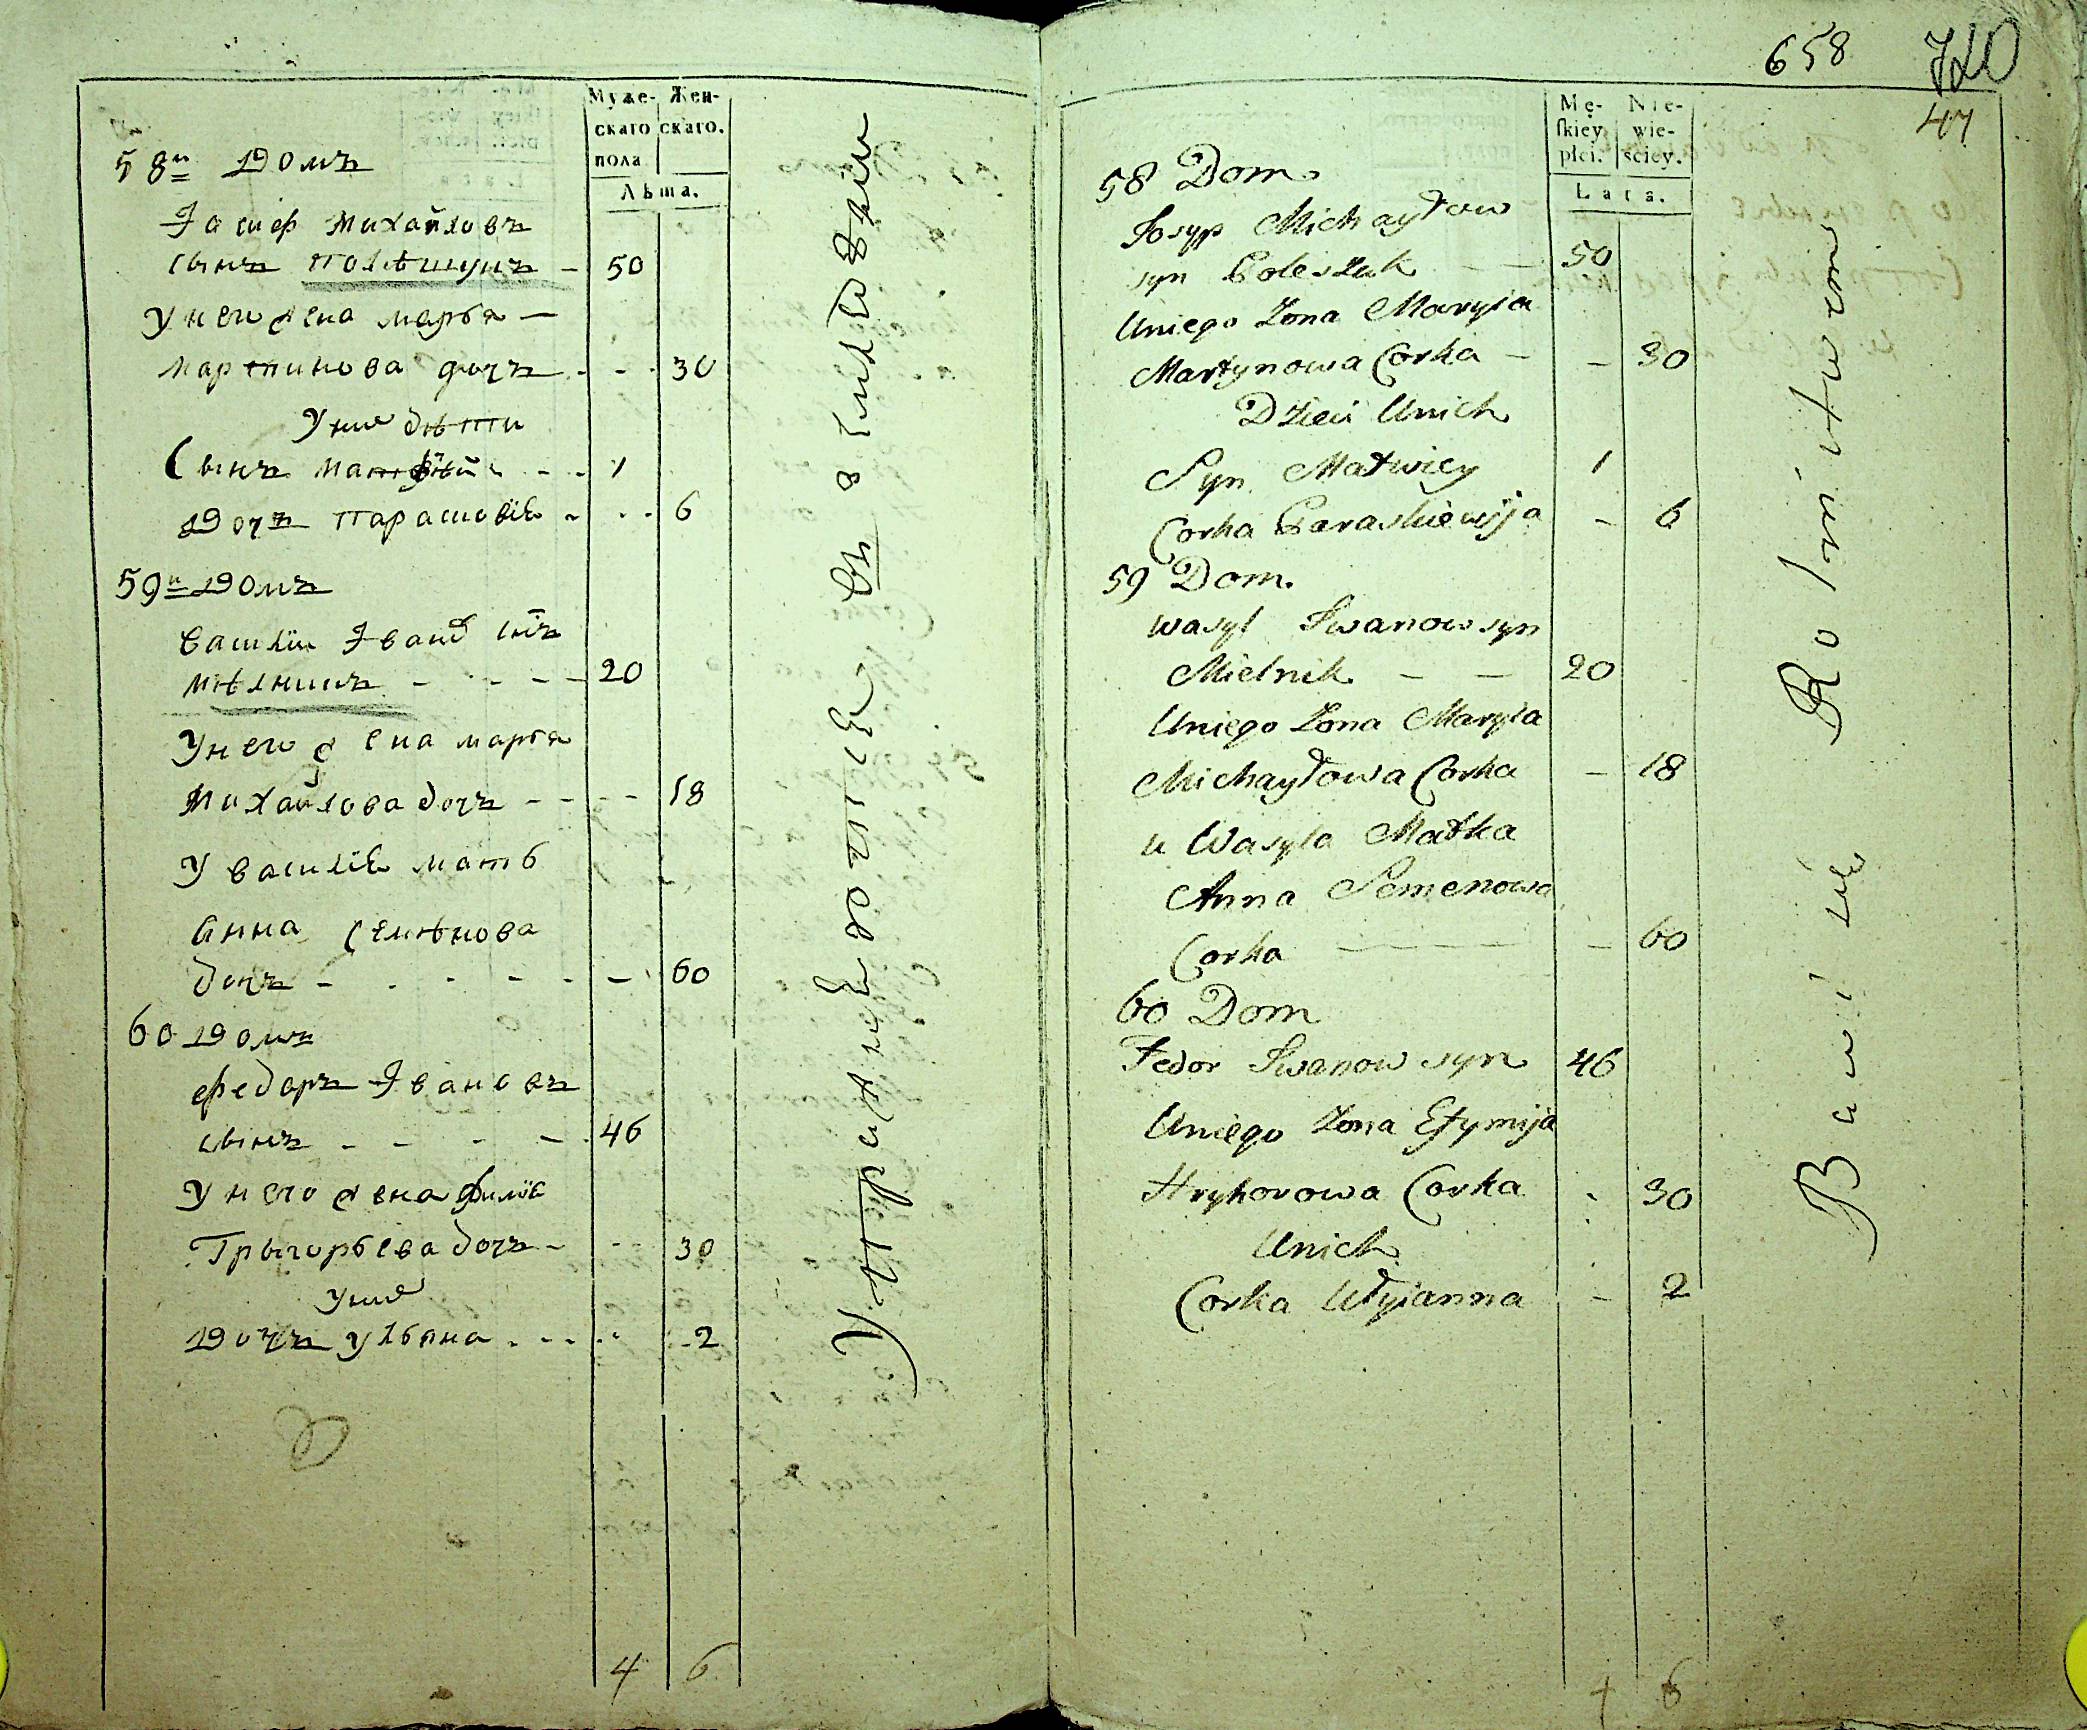 Муже- Жен-
скаго скаго.
пола
Лѣта.
58й Домъ
Іосиф Михайловъ
сынъ Полѣшукъ - 50
У него жена Марья -
Мартинова дочъ - - - 30
У них дѣти
Сынъ Матфѣй - - 1
Дочъ Парасковїя - - - 6
59й Домъ
Василїи Іванов сн̃ъ
Мѣлникъ - - - - 20
У него жена Марья
Михайлова дочъ - - - - 18
У Василїя мать
Анна Семѣнова
дочъ - - - - - - 60
60 Домъ
Федоръ Івановъ
сынъ - - - - 46
У него жена
Григорьева дочъ - - - 30
У них
Дочъ Ульяна - - - - 2
4 6
658 720
47
Mę- Nie-
ſkiey wie-
płci. sciey.
Lata.
58 Dom
Josyp Michayłow
syn Poleszuk - - 50
Uniego Zona Maryia
Martynowa Corka - - 30
Dzieci Unich
Syn Matwiey 1
Corka Paraskiewija - 6
59 Dom.
Wasyl Iwanow syn
Mielnik - - 20
Uniego Zona Maryia
Michayłowa Corka - 18
u Wasyla Matka
Anna Semenowa
Corka - - - - - 60
60 Dom
Fedor Iwanow syn 46
Uniego Zona Efymija
Hryhorowa Corka - 30
Unich
Corka Ułyianna - 2
4 6